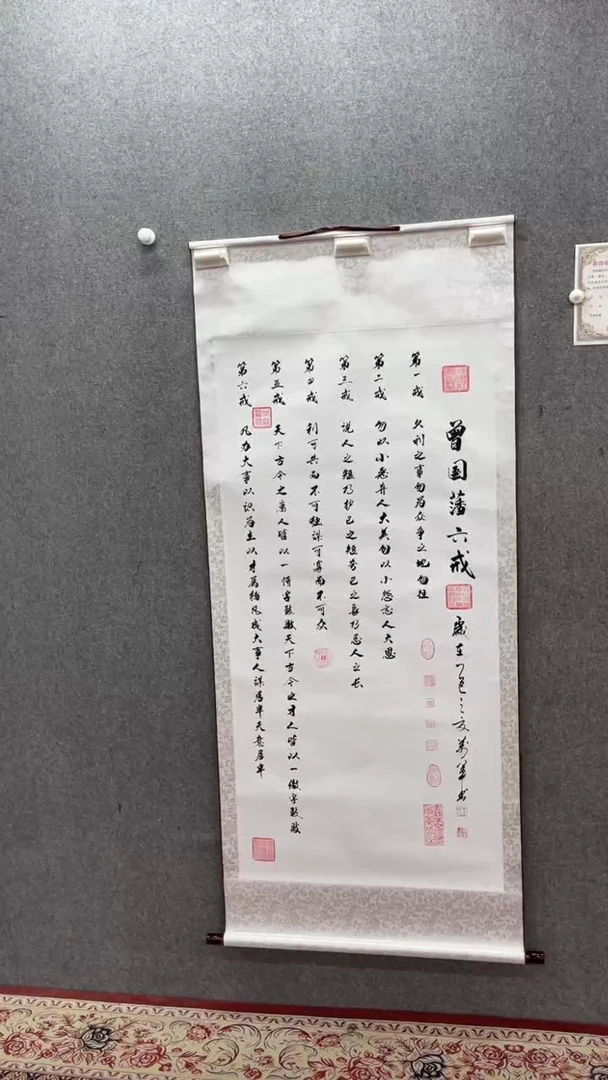 曾国藩六戒
岁在乙巳之夏 万军书
第一戒 久利之事勿为众争之地勿往
第二戒 勿以小恶弃人大美勿以小怨忘人大恩
第三戒 说人之短乃护己之短夸己之长乃忌人之长
第四戒 利可共而不可独谋可寡而不可众
第五戒 天下古今之庸人皆以一惰字致败天下古今之才人皆以一傲字致败
第六戒 凡办大事以识为主以才为辅凡成大事人谋居半天意居半